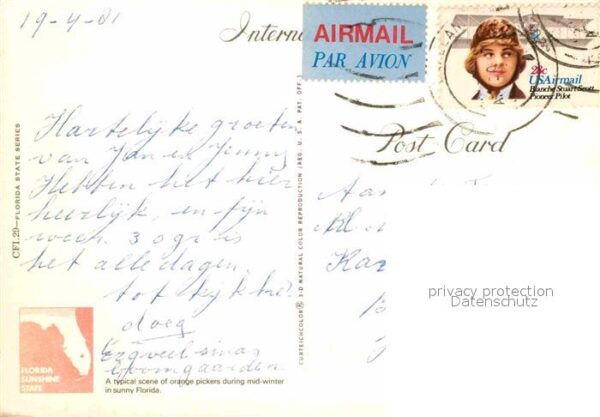 19-4-81
Intern
AIRMAIL
PAR AVION
28c
USAirmail
Blanche Stuart Scott
Pioneer Pilot
Post Card
Hartelijke groeten
van Jan en Jenny
Hebben het hier
heerlijk, en fijn
weer. 30 gr is
het alle dagen.
tot kijk hè.
doeg
CF1.29—FLORIDA STATE SERIES
CURTEICHCOLOR® 3-D NATURAL COLOR REPRODUCTION (REG. U.S.A. PAT. OFF.)
Aan
Kl
Kar
privacy protection
Datenschutz
FLORIDA
SUNSHINE
STATE
A typical scene of orange pickers during mid-winter
in sunny Florida.